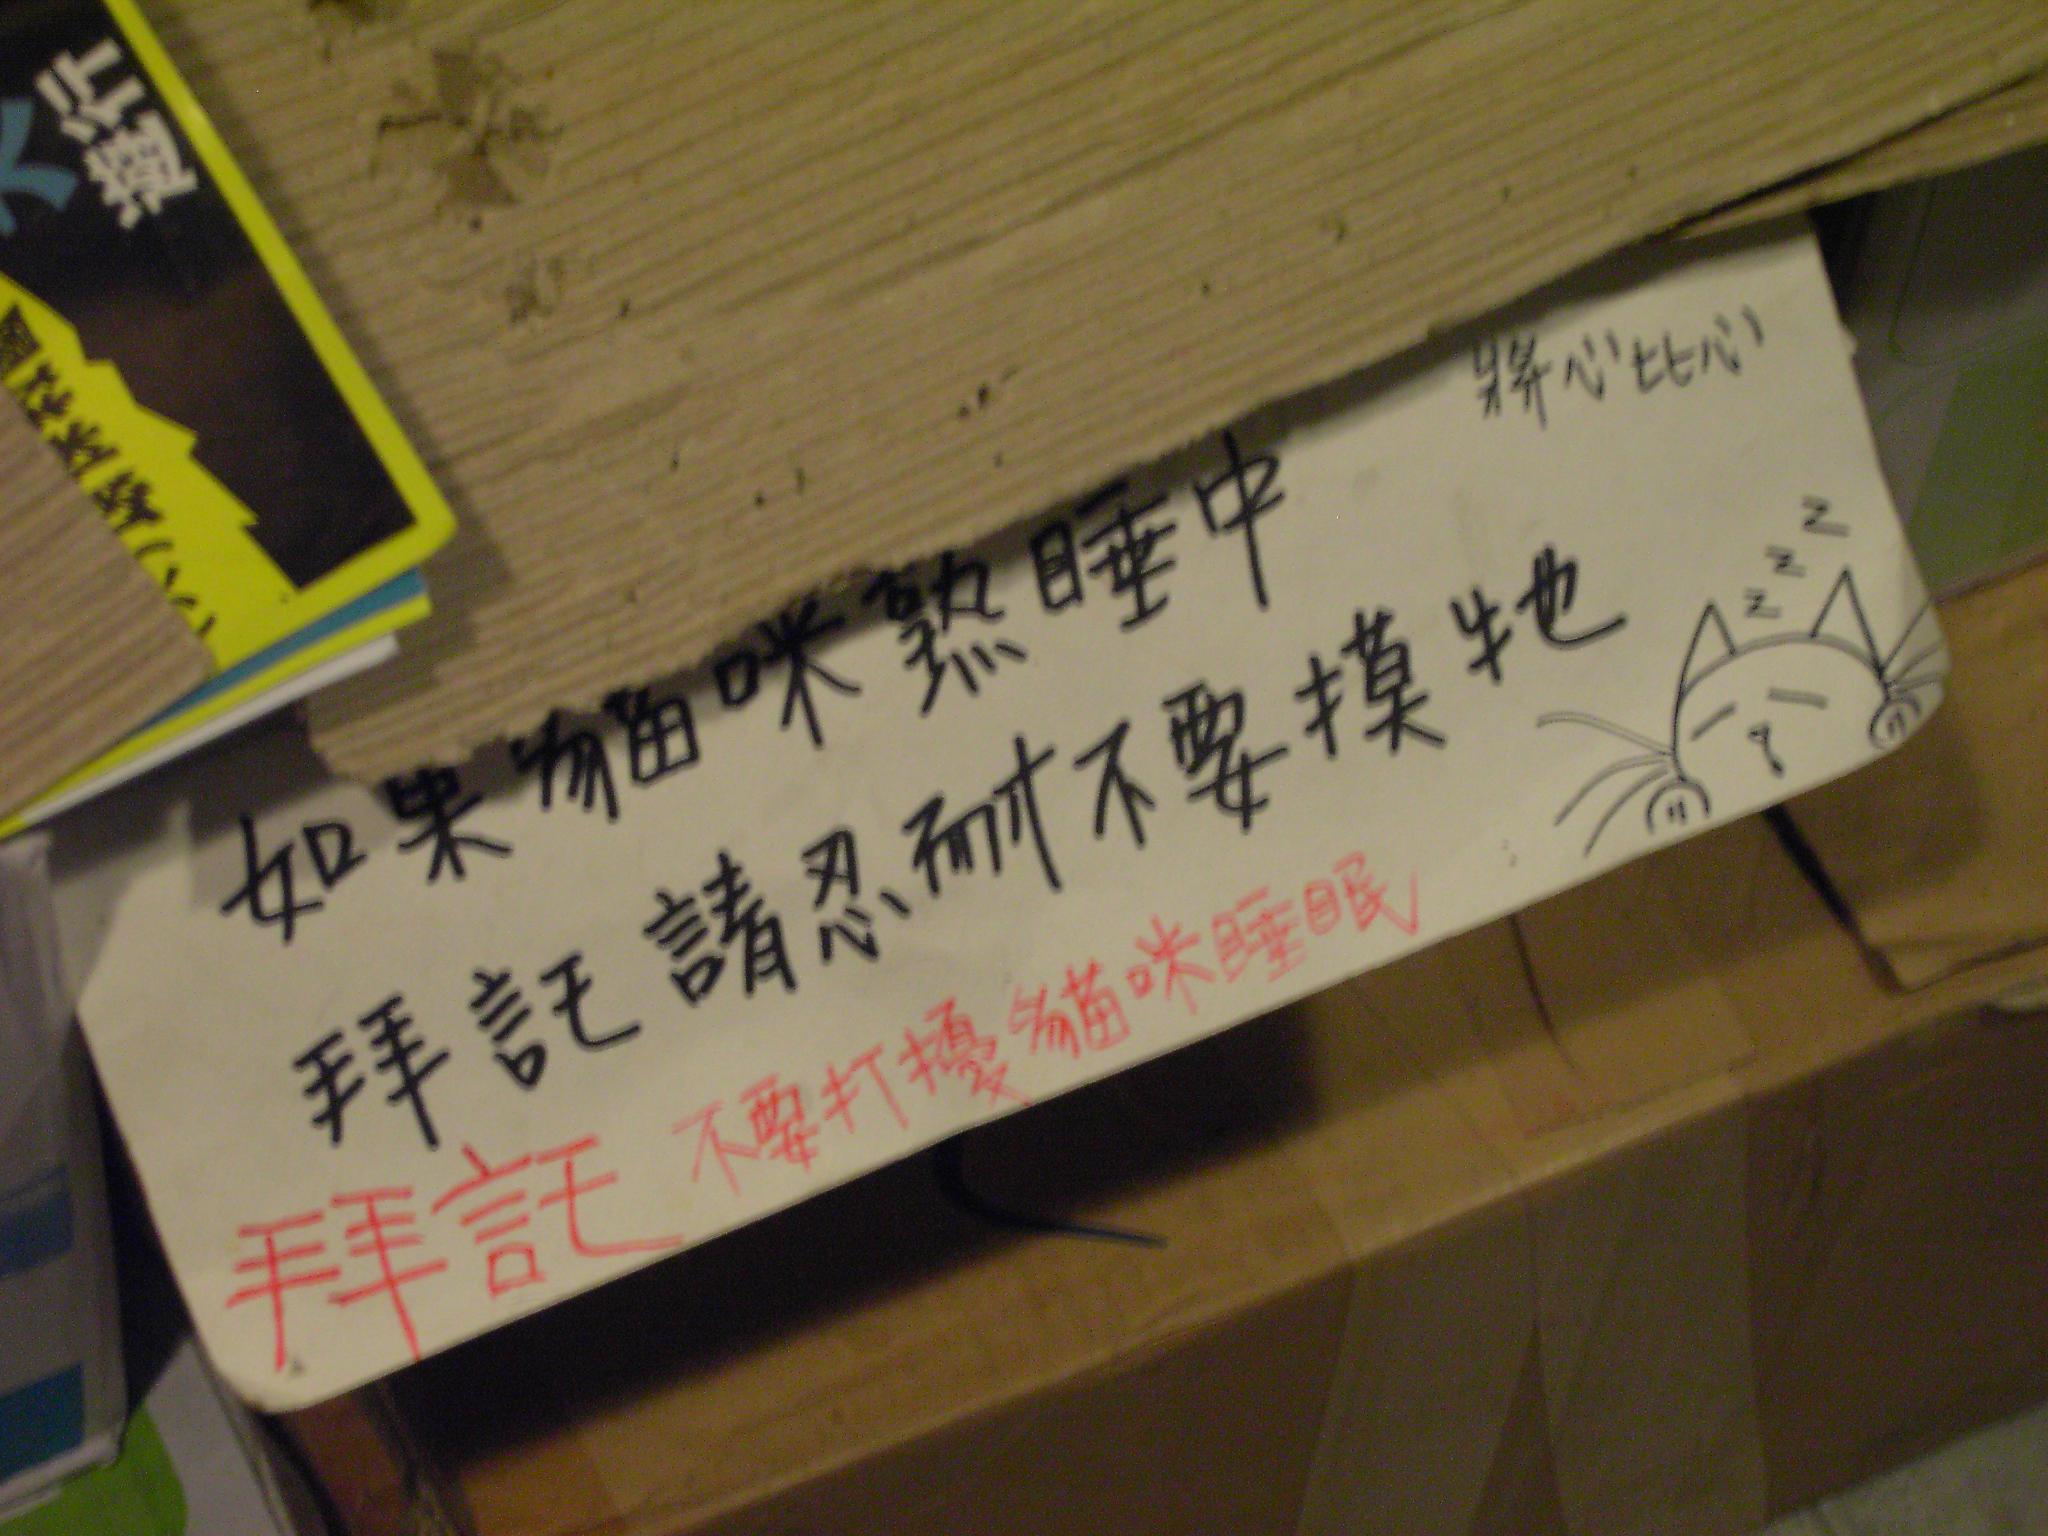 遊行
將心比心
如果貓咪熟睡中
拜託請忍耐不要摸牠
拜託 不要打擾貓咪睡眠
z z z